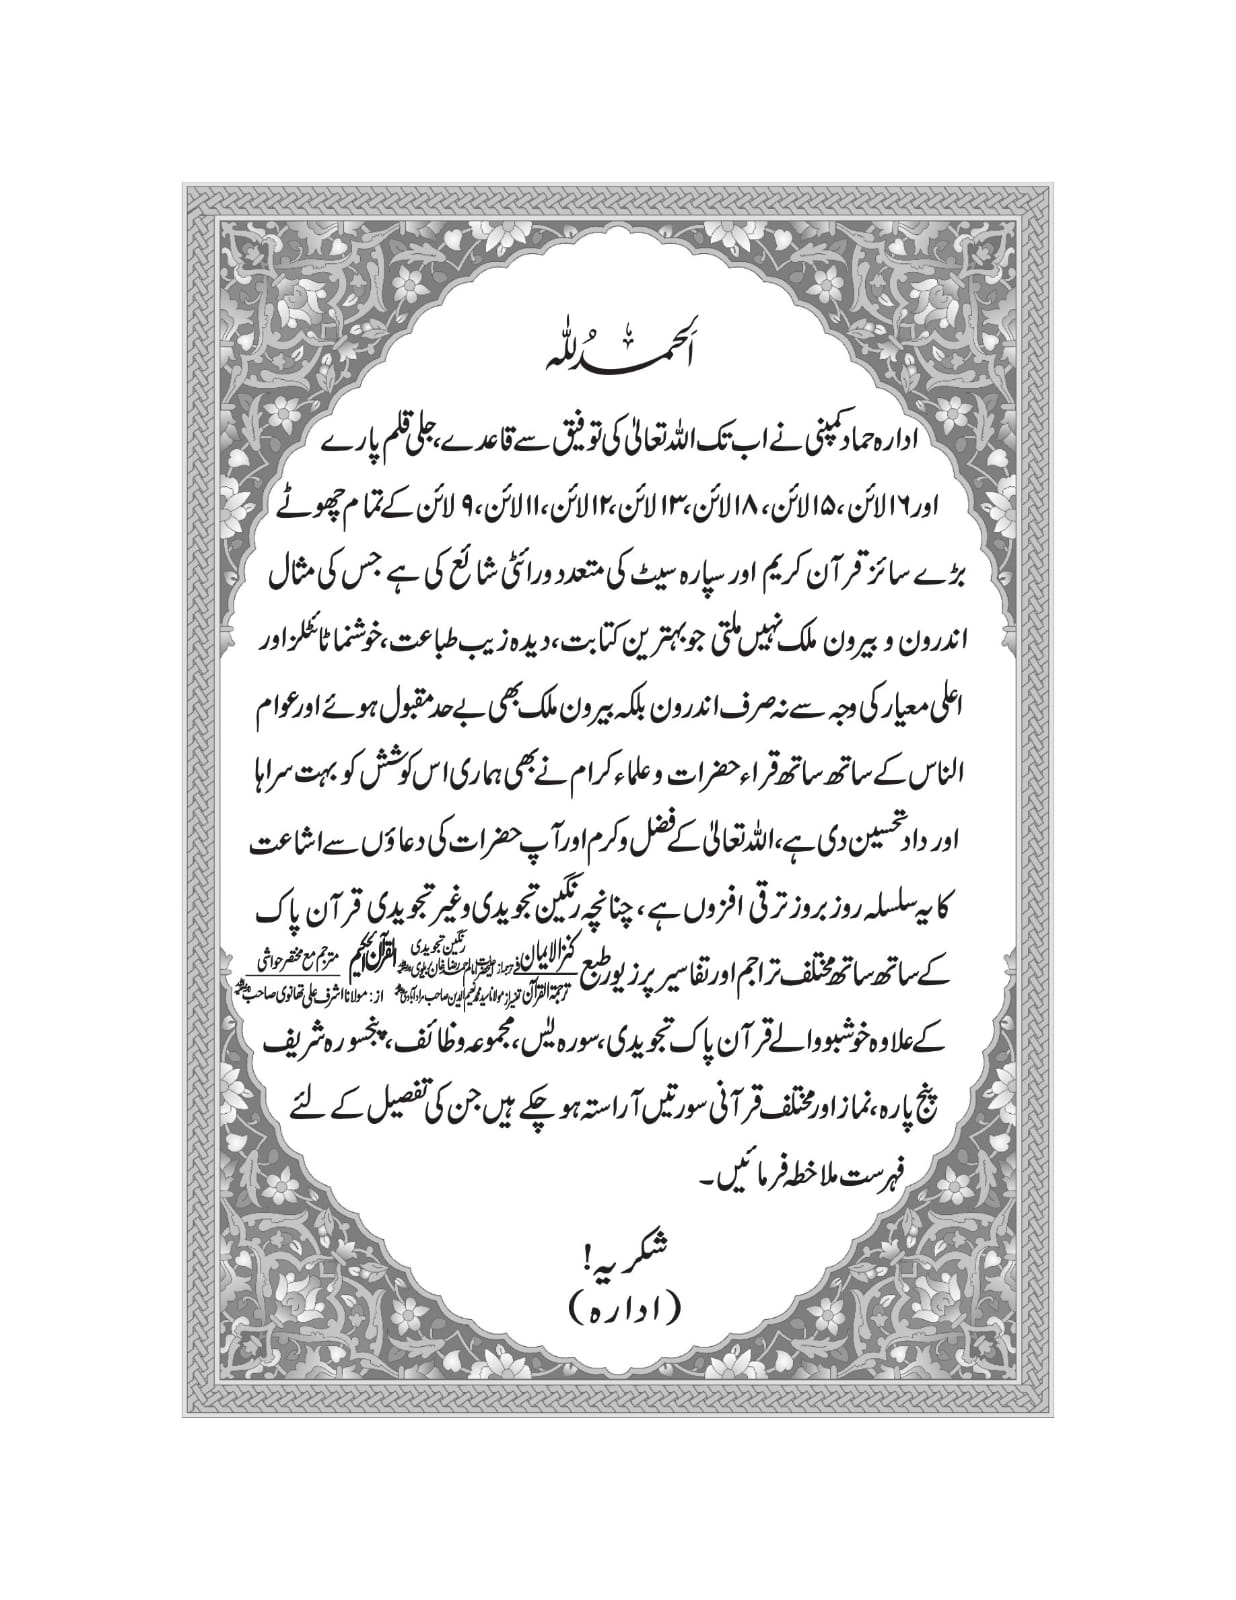 الحمدُ للہ
ادارہ حماد کمپنی نے اب تک اللہ تعالیٰ کی توفیق سے قاعدے، جلی قلم پارے
اور ۱۶ لائن، ۱۵ لائن، ۱۸ لائن، ۱۳ لائن، ۱۲ لائن، ۱۱ لائن، ۹ لائن کے تمام چھوٹے
بڑے سائز قرآن کریم اور سپارہ سیٹ کی متعدد ورائٹی شائع کی ہے جس کی مثال
اندرون و بیرون ملک نہیں ملتی جو بہترین کتابت، دیدہ زیب طباعت، خوشنما ٹائٹلز اور
اعلی معیار کی وجہ سے نہ صرف اندرون بلکہ بیرون ملک بھی بے حد مقبول ہوئے اور عوام
الناس کے ساتھ ساتھ قراء حضرات و علماء کرام نے بھی ہماری اس کوشش کو بہت سراہا
اور داد تحسین دی ہے، اللہ تعالیٰ کے فضل و کرم اور آپ حضرات کی دعاؤں سے اشاعت
کا یہ سلسلہ روز بروز ترقی افزوں ہے، چنانچہ رنگین تجویدی و غیر تجویدی قرآن پاک
کے ساتھ ساتھ مختلف تراجم اور تفاسیر پر زیور طبع
کنزالایمان فی ترجمۃ القرآن
رنگین تجویدی
ترجمہ از: اعلیحضرت امام احمد رضا خان بریلوی
تفسیر از مولانا سید محمد نعیم الدین صاحب مرادآبادی
القرآن الحکیم مترجم مع مختصر حواشی
از: مولانا اشرف علی تھانوی صاحب
کے علاوہ خوشبو والے قرآن پاک تجویدی، سورہ یٰس، مجموعہ وظائف، پنجسورہ شریف
پنج پارہ، نماز اور مختلف قرآنی سورتیں آراستہ ہو چکے ہیں جن کی تفصیل کے لئے
فہرست ملاخطہ فرمائیں۔
شکریہ!
(ادارہ)